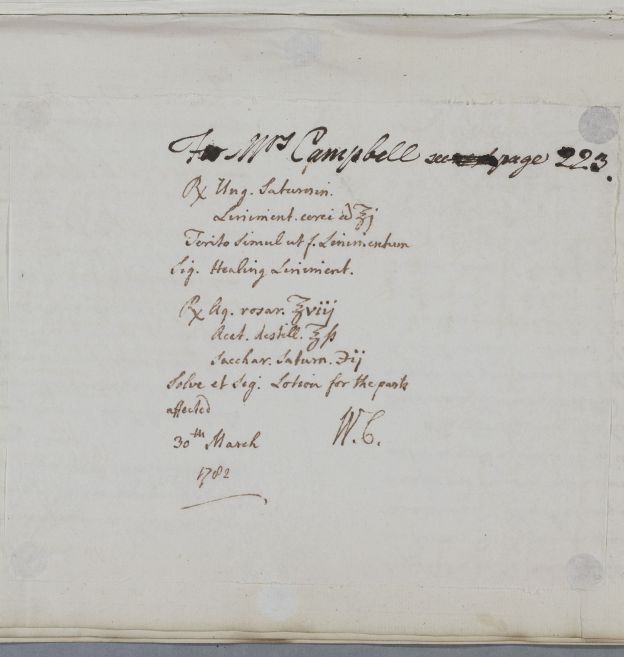 For Mrs Campbell see page 223.
℞ Ung. Saturnin.
Liniment. cerei a ʒj
Terito simul ut f. Linimentum
Sig. Healing Liniment.
℞ Aq. rosar. ℥viij
Acet. destill. ℥ß
Sacchar. Saturn. ℈ij
Solve et Sig. Lotion for the parts
affected
30th March W.C.
1782